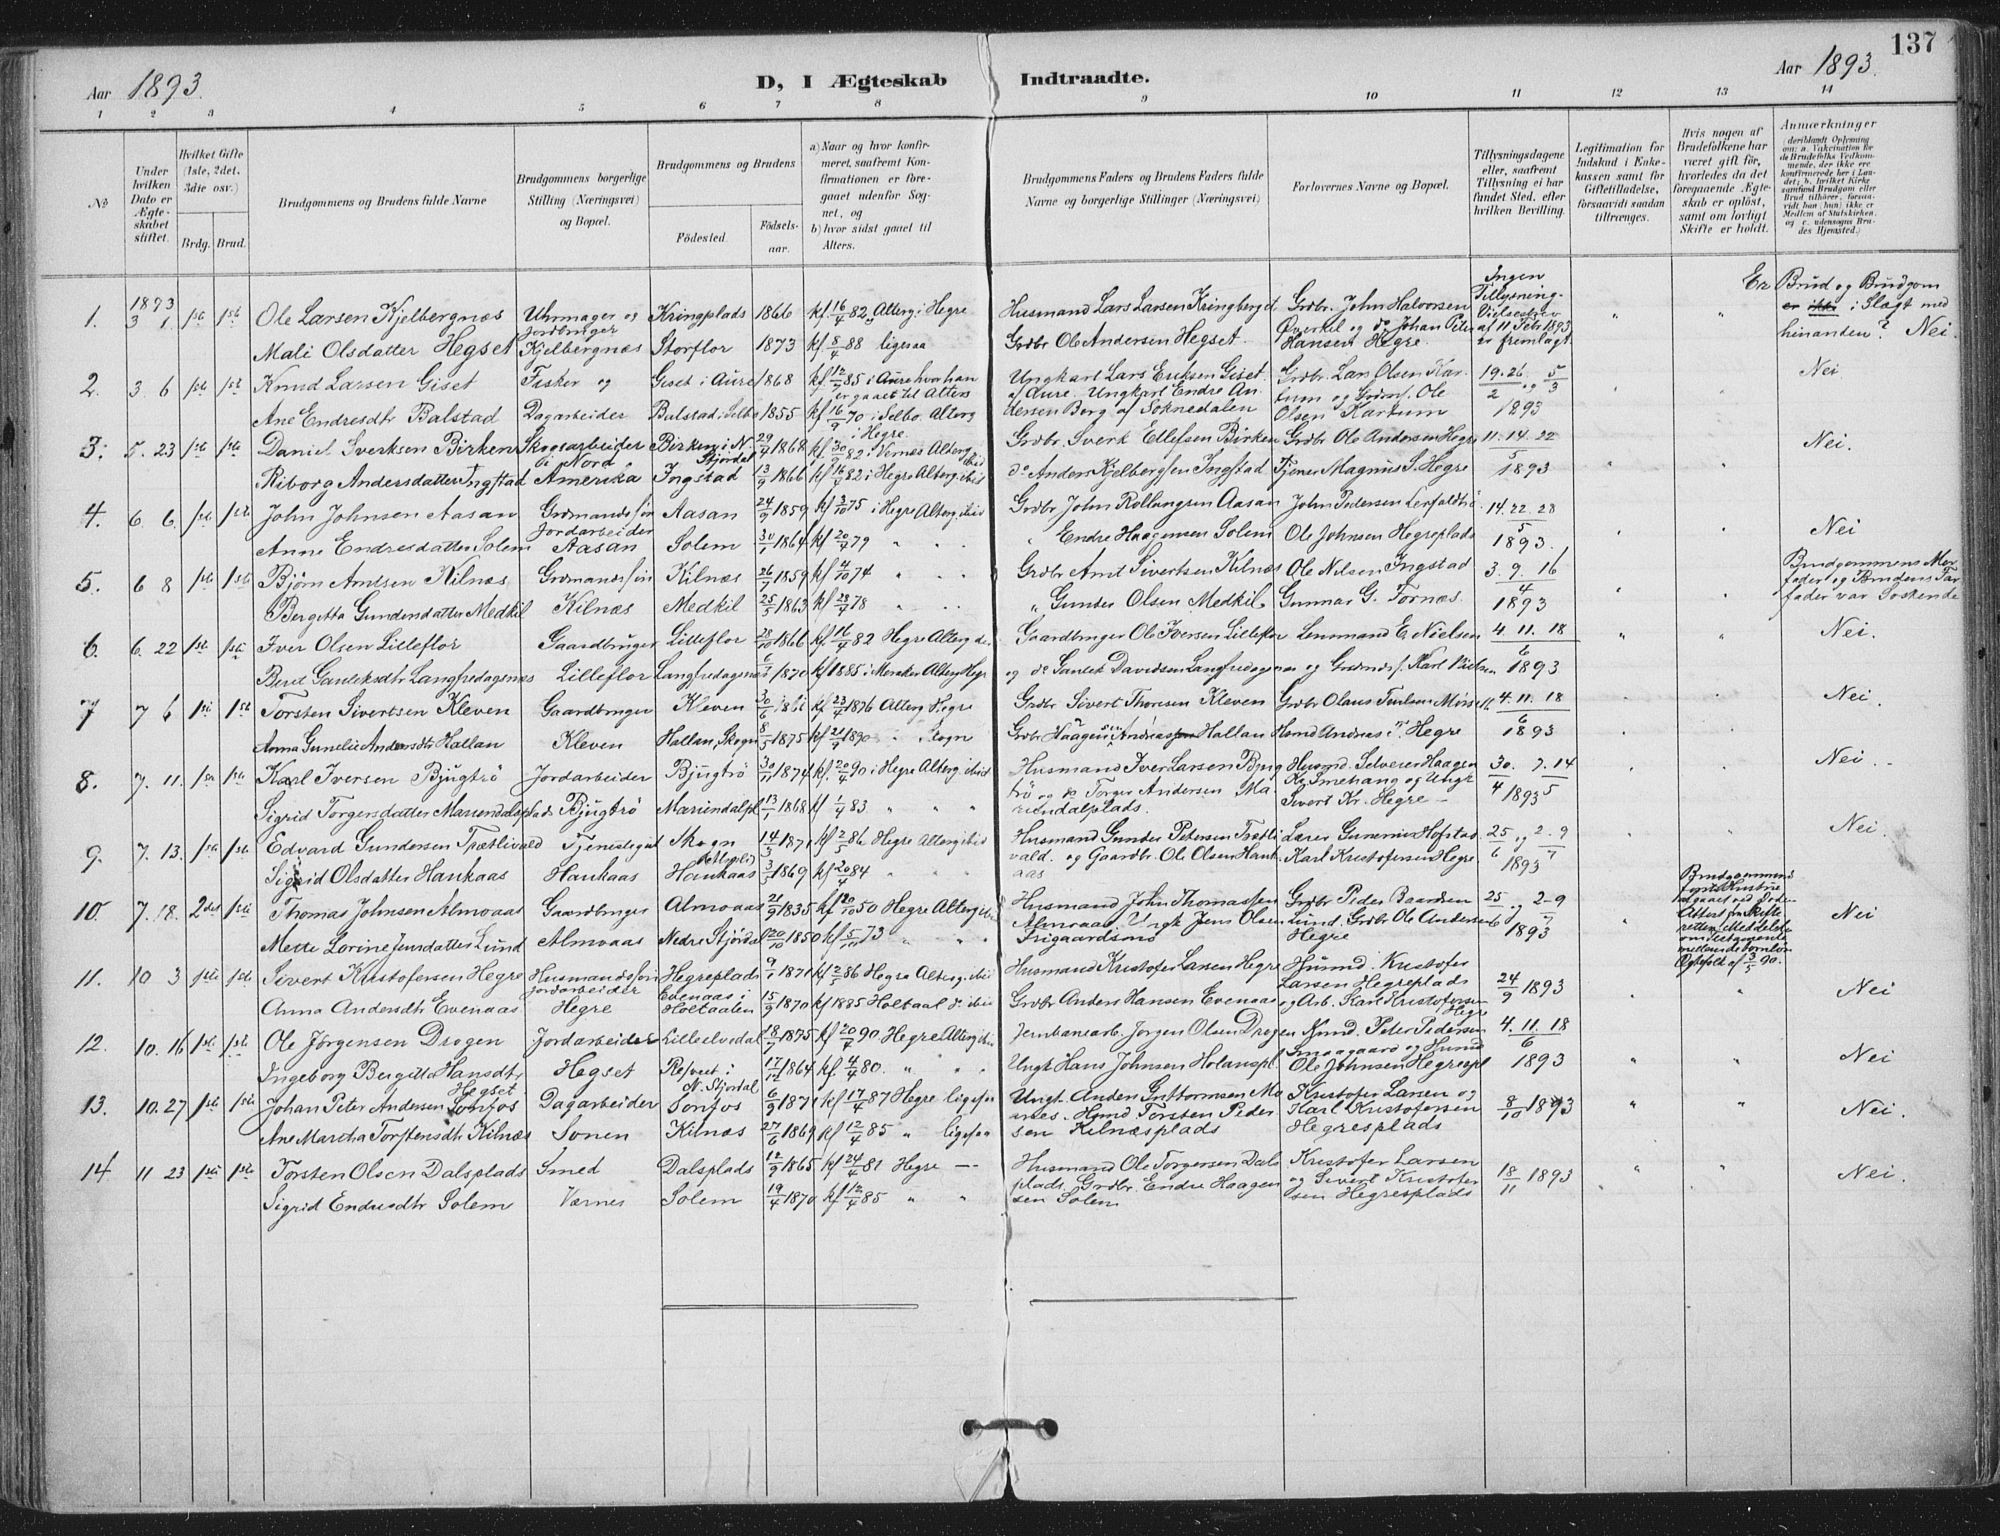 137
Aar 1893.
D, I Ægteskab Indtraadte.
Aar 1893.
1 2 3 4 5 6 7 8 9 10 11 12 13 14
No
Under hvilken Dato er Ægteskabet stiftet.
Hvilket Gifte (1ste, 2det, 3die osv.)
Brdg. Brud.
Brudgommens og Brudens fulde Navne
Brudgommens borgerlige Stilling (Næringsvei) og Bopæl.
Brudgommens og Brudens
Fødested. Fødselsaar.
a) Naar og hvor konfirmeret, saafremt Konfirmationen er foregaaet udenfor Sognet, og
b) hvor sidst gaaet til Alters.
Brudgommens Faders og Brudens Faders fulde Navne og borgerlige Stillinger (Næringsvei)
Forlovernes Navne og Bopæl.
Tillysningsdagene eller, saafremt Tillysning ei har fundet Sted, efter hvilken Bevilling.
Legitimation for Indskud i Enkekassen samt for Giftetilladelse, forsaavidt saadan tiltrænges.
Hvis nogen af Brudefolkene har været gift før, hvorledes da det foregaaende Ægteskab er opløst, samt om lovligt Skifte er holdt.
Anmærkninger (deriblandt Oplysning om: a. Vakcination for de Brudefolks Vedkommende, der ikke ere konfirmerede her i Landet; b. hvilket Kirkesamfund Brudgom eller Brud tilhører, forsaavidt han (hun) ikke er Medlem af Statskirken, og c. udensogns Brudes Hjemsted.)
1. 1893 3 1 1ste 1ste Ole Larsen Kjelbergnæs Uhrmager og Jordbruger Kringplads 1866 kf. 16/4 82 Alterg. i Hegre Husmand Lars Larsen Kringberget Grdbr. John Halvorsen Ingen Tillysning. " " Er Brud og Brudgom i Slægt med
Mali Olsdatter Hegset Kjelbergnæs Storflor 1873 kf. 8/4 88 ligesaa Grdbr Ole Andersen Hegset. Øverkil og do Johan Peter Hansen Hegre. Vielsesbrev af 11 Febr 1893 er fremlagt. hinanden? Nei.
2. 3 6 1ste 1ste Knud Larsen Giset Fisker og Giset i Aure 1868 kf. 12/7 85 i Aure hvor han er gaaet til Alters Ungkarl Lars Eriksen Giset af Aure. Ungkarl Endre An Grdbr. Lars Olsen Kar 19. 26/2 og 5/3 Nei
Ane Endresdtr Balstad Dagarbeider Balstad, Selbo 1855 kf 16/9 70 i Selbo. Alterg i Hegre. dersen Borg af Soknedalen tum og Grdms. Ole Olsen Kartum 1893
3. 5. 23 1ste 1ste Daniel Sverksen Birken Skogsarbeider i Nord Birken i N. Stjørdal 29/4 1868 kf. 30/9 82 i Værnes Alterg. ibid Grdbr. Sverk Ellefsen Birken Grdbr Ole Andersen Hegre 11. 14. 22/5 Nei.
Riborg Andersdatter Ingstad Amerika Ingstad 13/9 1866 kf 16/4 82 i Hegre Alterg. ibid do Anders Kjelbergsen Ingstad Tjener Magnus S. Hegre 1893
4. 6. 6. 1ste 1ste John Johnsen Aasan Grdmandssøn Jordarbeider Aasan 24/9 1859 kf 3/10 75 i Hegre Alterg. ibid Grdbr John Rollaugsen Aasan John Pedersen Lerfaldtrø 14. 22. 28/5 Nei
Anne Endresdatter Solem Aasan Solem 30/1 1864 kf 20/4 79 " Endre Haagensen Solem Ole Johnsen Hegreplads 1893.
5. 6 8 1ste 1ste Bjørn Arntsen Kilnæs Grdmandssøn Kilnæs 26/7 1859 kf 4/10 74 Grdbr Arnt Sivertsen Kilnæs Ole Nilsen Ingstad 3. 9. 16/4 Brudgommens Morfader og Brudens Farfader var Søskende
Bergitta Gundersdatter Medkil Kilnæs Medkil 25/5 1863 kf 28/4 78 " Gunder Olsen Medkil Gunnar G. Fornæs. 1893
6. 6. 22 1ste 1ste Iver Olsen Lilleflor Gaardbruger Lilleflor 28/10 1866 kf. 16/4 82 Hegre Alterg. do Gaardbruger Ole Iversen Lilleflor Lensmand E. Nielsen 4. 11. 18/6 " " Nei.
Beret Langfredagenæs Lilleflor Langfredagenæs 6/7 1870 kf 1885 i Meraker Alterg Hegre og do Davidsen Langfredagenæs og Grdmds. Karl Nielsen 1893
7 7 6 1ste 1ste Torsten Sivertsen Kleven Gaardbruger Kleven 30/6 kf 23/4 1876 Alterg Hegre Grdbr Sivert Thoresen Kleven Grdbr Olaus 4. 11. 18/6 Nei.
Anna Gunelie Andersdtr Hallan Kleven Hallan, Skogn 8/5 1875 kf 21/9 1890 " Skogn Grdbr Haagen Andreas Hallan Hsmd Andreas T. Hegre 1893
8. 7. 11. 1ste 1ste Karl Iversen Bjugtrø Jordarbeider Bjugtrø 30/11 1874 kf. 20/4 90 i Hegre Alterg ibid Husmand Iver Larsen Bjug Husmd. Selveier Haagen 30/4 7. 14/5 Nei.
Sigrid Torgersdatter Mariendalsplads Bjugtrø Mariendalspl 13/1 1868 kf 1/4 83 trø og do Torger Andersen Mariendalplads. Kr. Smehaug og Ungk. Sivert Kr. Hegre 1893
9. 7. 13. 1ste 1ste Edvard Gundersen Trætlivald Tjenestegut Skogn 14/3 1871 kf 2/5 86 Hegre Alterg ibid Husmand Gunder Petersen Trætli Lærer Gunnerius Hofstad 25/6 og 2-9/7 Nei.
Sigrid Olsdatter Haukaas Haukaas Haukaas 3/5 1869 kf. 20/4 84 vald. og Gaardbr. Ole Olsen Haukaas Karl Kristofersen Hegre 1893
10. 7. 18. 2det 1ste Thomas Johnsen Almoaas Gaardbruger Almoaas 21/9 1835 kf 20/10 50 Hegre Alterg ibid Husmand John Thomassen Grdbr Peder Baardsen 25/6 og 2-9/7 Nei
Mette Lorine Jensdatter Lund Almoaas Nedre Stjørdal 20/10 1850 kf 5/10 73 Almoaas. Ungk Jens Olsen Lund. Grdbr Ole Andersen Hegre 1893
11. 10 3 1ste 1ste Sivert Kristofersen Hegre Husmandssøn Jordarbeider Hegreplads 9/1 1871 kf 2/5 86 Hegre Alterg. ibid Husmand Kristofer Larsen Hegre Husmd. Kristofer Larsen Hegreplads 24/9 1893 Nei
Anna Andersdtr Evenaas Hegre Evenaas i Holtaalen 15/9 1870 kf 1885 Holtaal do ibid Grdbr Anders Hansen Evenaas og Arb. Karl Kristofersen Hegre
12. 10. 16 1ste 1ste Ole Jørgensen Drogen Jordarbeider Lilleelvedal 18/1 1875 kf 20/4 90 Hegre Alterg. ibid Jernbanearb. Jørgen Olsen Drogen Husmd. Peter Pedersen 4. 11. 18/6 Nei
Ingeborg Bergitta Hansdtr Hegset Hegset Resvet i N. Stjørdal 17/12 1864 kf. 4/4 80. Ungk Hans Johnsen Holanspl. Smaagaard og Husmd Ole Johnsen Hegrespl 1893
13. 10. 27 1ste 1ste Johan Peter Andersen Sonfos Dagarbeider Sonfos 6/9 1871 kf 17/4 87 Hegre ligesaa Ungk. Anders Guttormsen Mo Kristofer Larsen og 8/10 1893 Nei.
Ane Martha Torstensdtr Kilnæs Sonen Kilnæs 27/6 1869 kf 12/4 85 " ligesaa Hsmd Torsten Pedersen Kilnæsplads Karl Kristofersen Hegresplads
14. 11 23 1ste 1ste Torsten Olsen Dalsplads Smed Dalsplads 12/9 1865 kf 24/4 81 Hegre Husmand Ole Torgersen Dalsplads Kristofer Larsen 18/11 1893 " " Nei.
Sigrid Endresdtr Solem Værnes Solem 19/4 1870 kf 12/4 85 " " Grdbr. Endre Haagensen Solem og Sivert Kristofersen Hegresplads